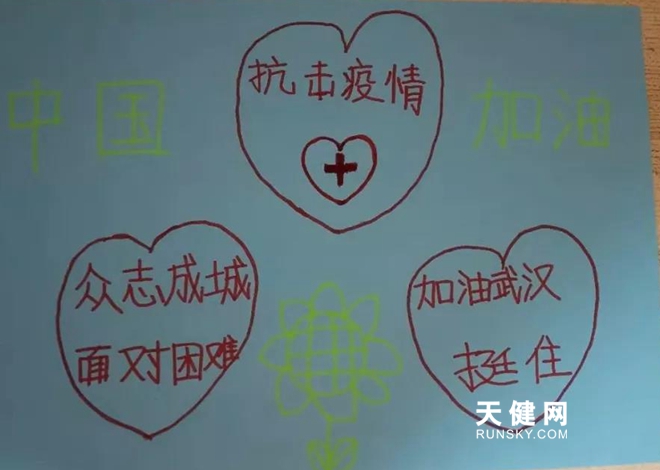 中国
抗击疫情
加油
众志成城
面对困难
加油武汉
挺住
天健网
RUNSKY.COM